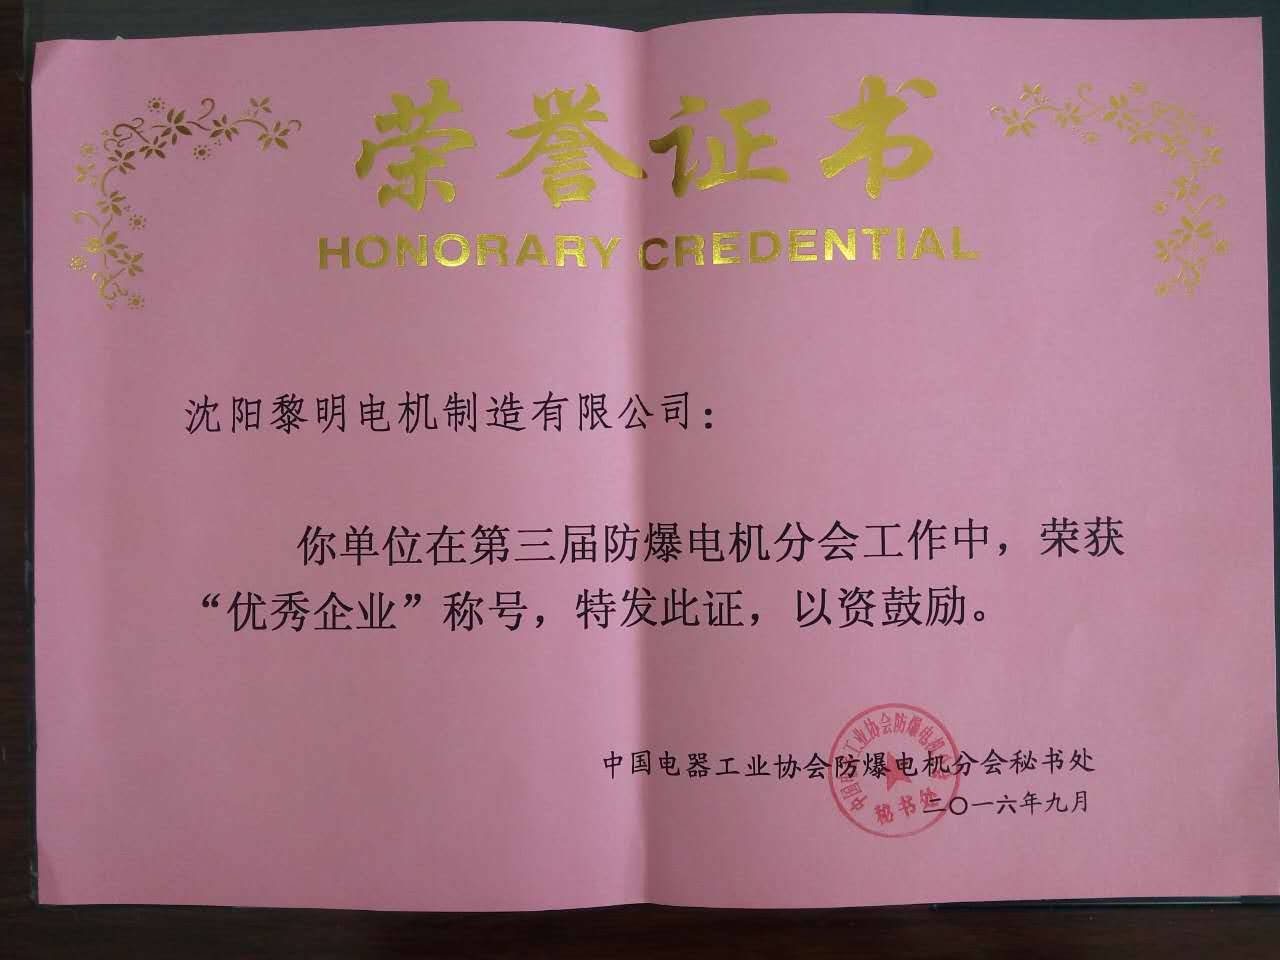 荣誉证书
HONORARY CREDENTIAL
沈阳黎明电机制造有限公司：
你单位在第三届防爆电机分会工作中，荣获
“优秀企业”称号，特发此证，以资鼓励。
中国电器工业协会防爆电机分会秘书处
二〇一六年九月
秘书处